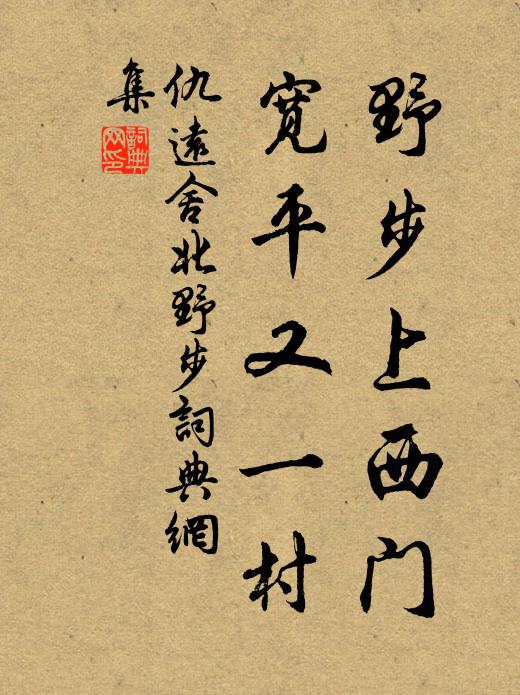 野步上西门
宽平又一村
仇远舍北野步詞典網
集
詞典
网印